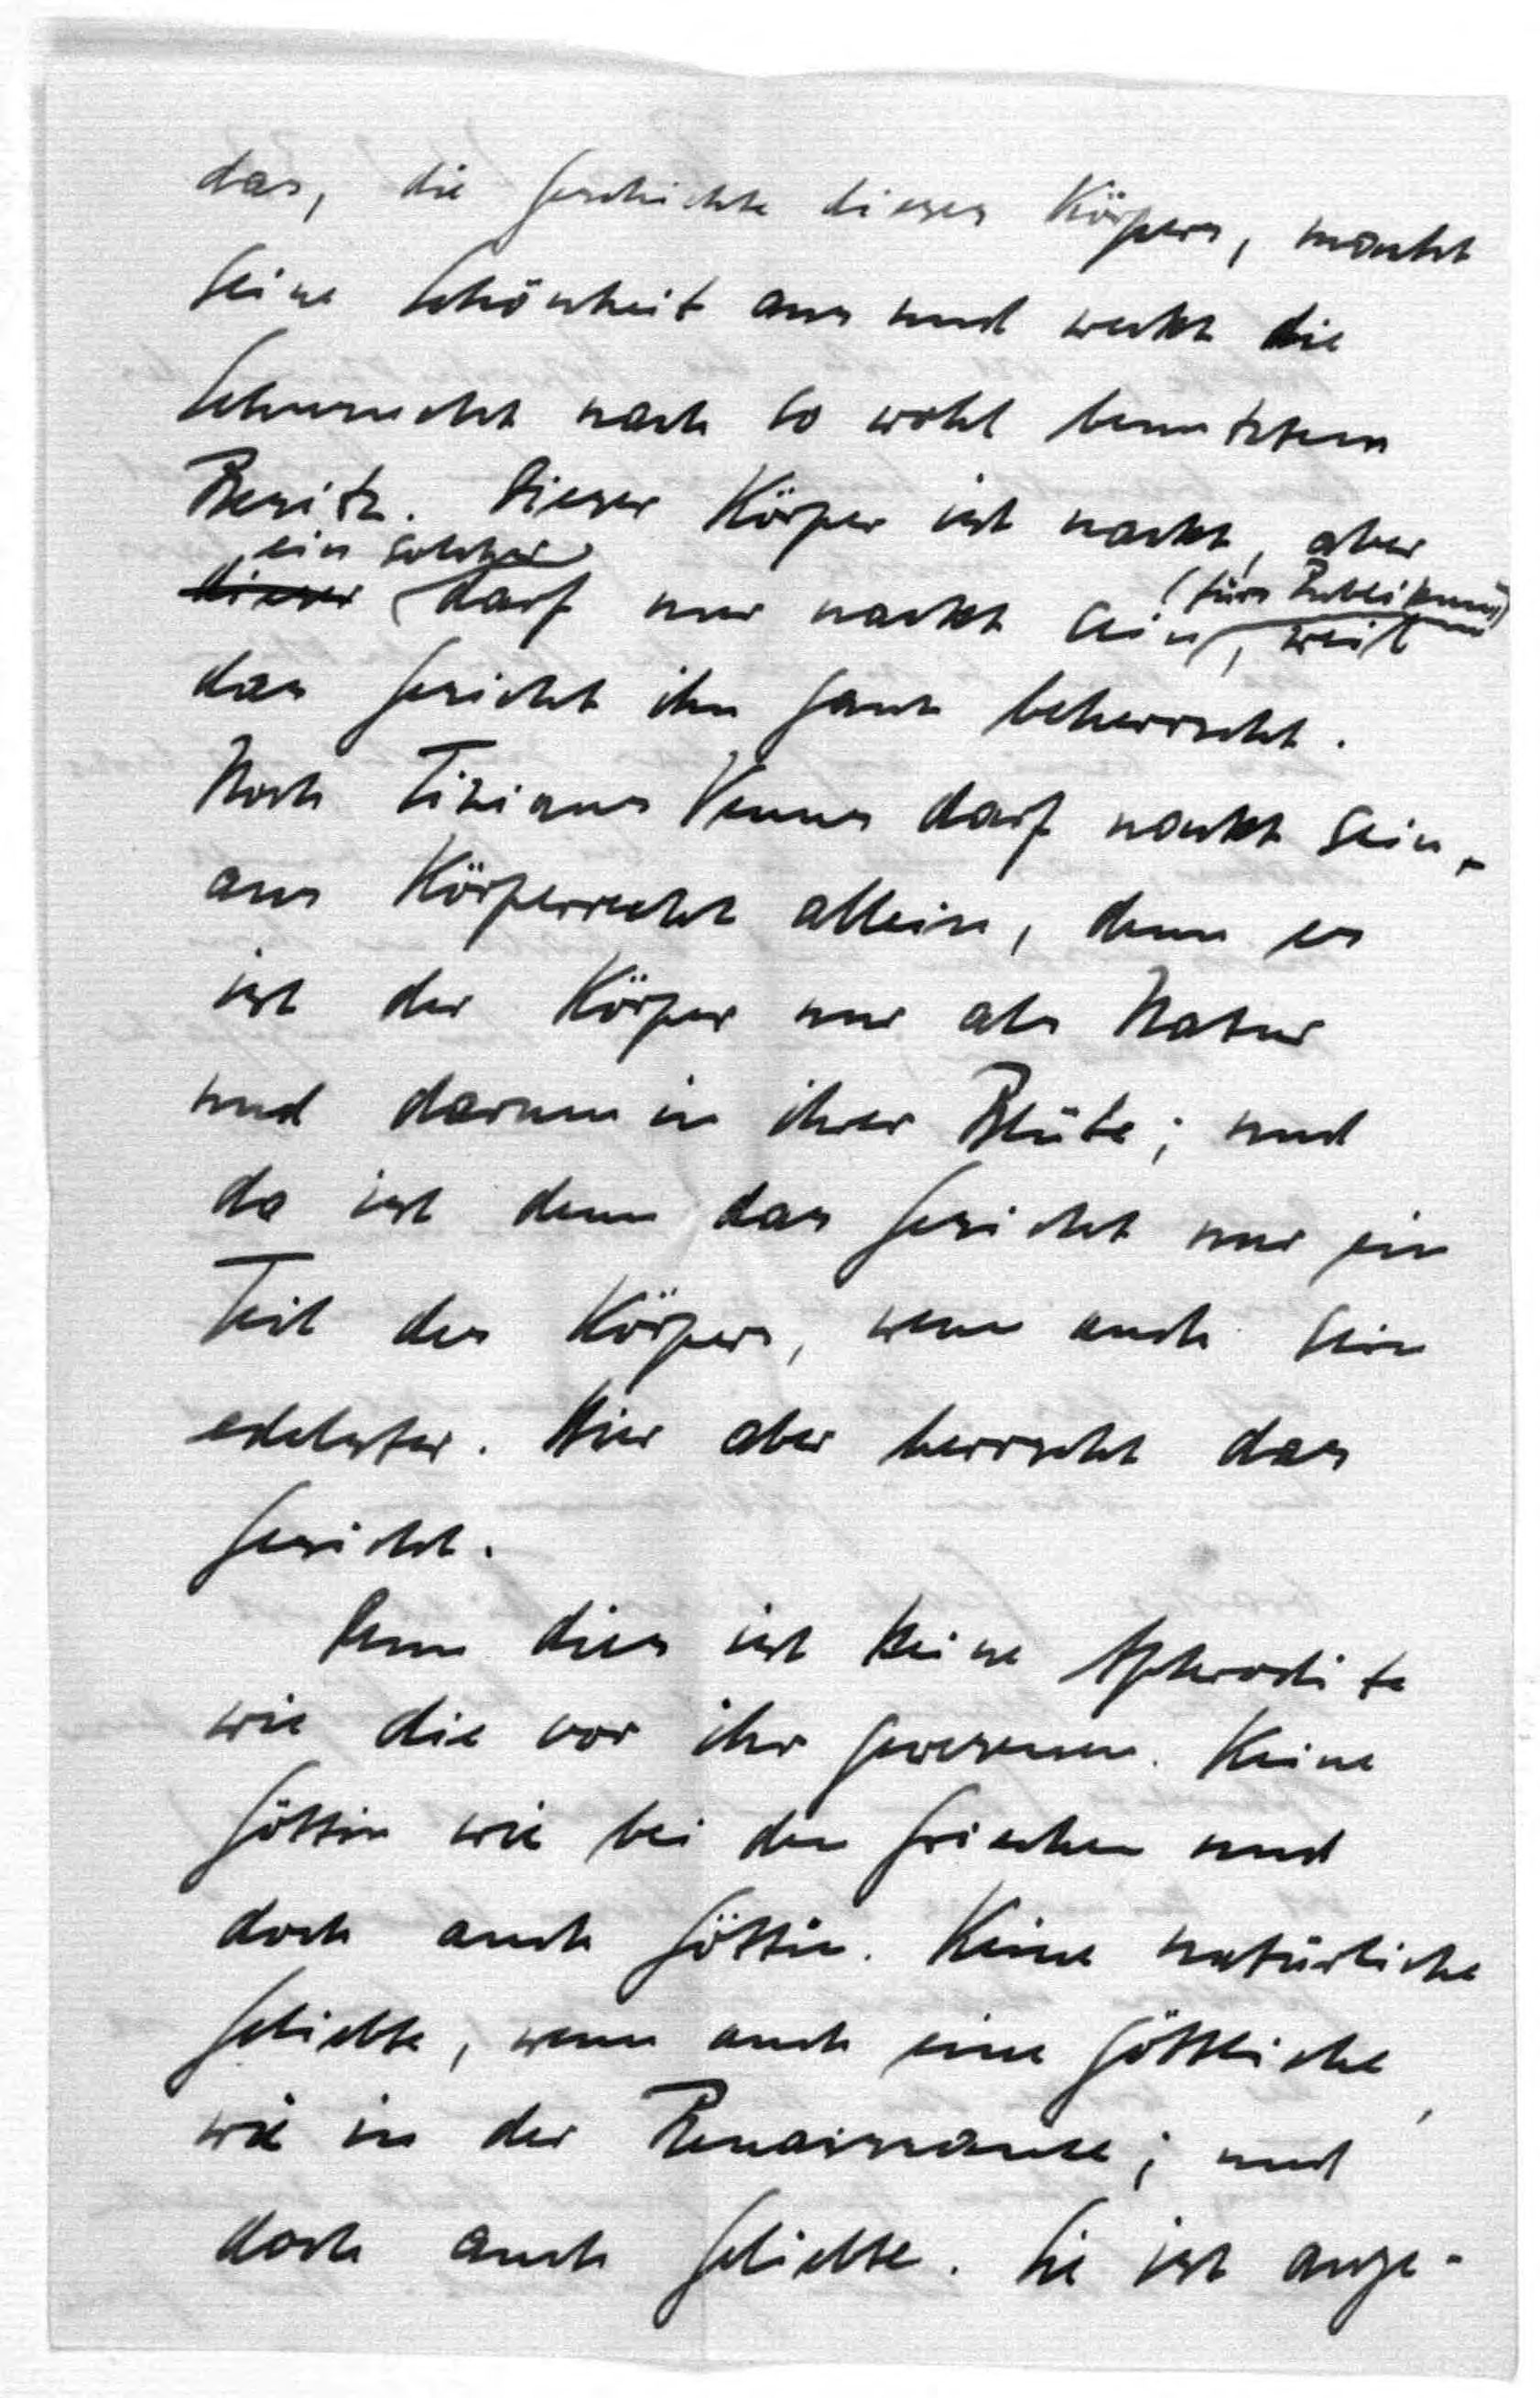 das, die Geschichte dieses Körpers, macht
seine Schönheit aus und weckt die
Sehnsucht nach so wohl benutztem
Besitz. Dieser Körper ist nackt, aber
ein solcher (fürs Publikum)
dieser darf nur nackt sein, weil
das Gesicht ihn ganz beherrscht.
Noch Tizians Venus darf nackt sein,
aus Körperrecht allein, denn es
ist der Körper nur als Natur
und darum in ihrer Blüte; und
da ist denn das Gesicht nur ein
Teil des Körpers, wenn auch sein
edelster. Hier aber herrscht das
Gesicht.
Denn dies ist keine Aphrodite
wie die vor ihr gewesenen. Keine
Göttin wie bei den Griechen und
doch auch Göttin. Keine natürliche
Geliebte, wenn auch eine göttliche,
wie in der Renaissance; und
doch auch Geliebte. Sie ist ange-